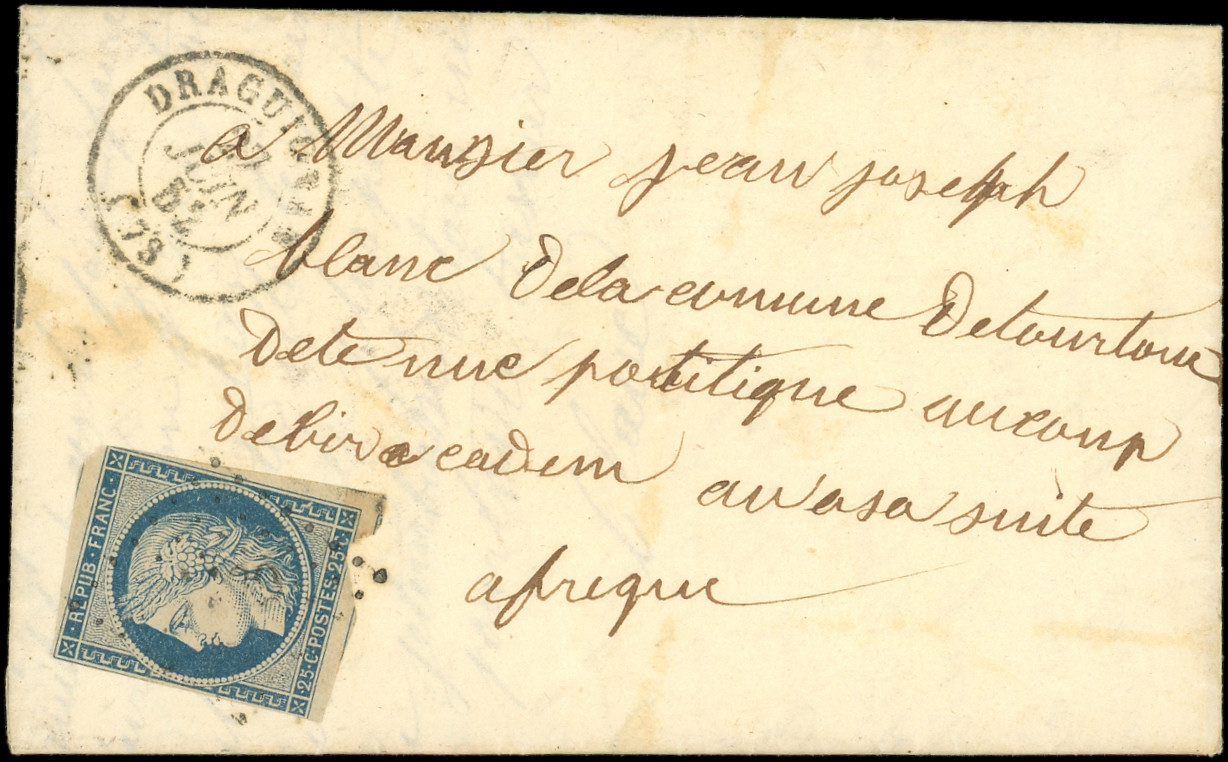 DRAGUIGNAN
JUIN
52
(83)
a Mansier jean joseph
blanc dela comune detourtour
detenue politique aucamp
debir cadem avasa suite
afrique
REPUB · FRANC ·
· 25 · C · POSTES · 25 · C ·